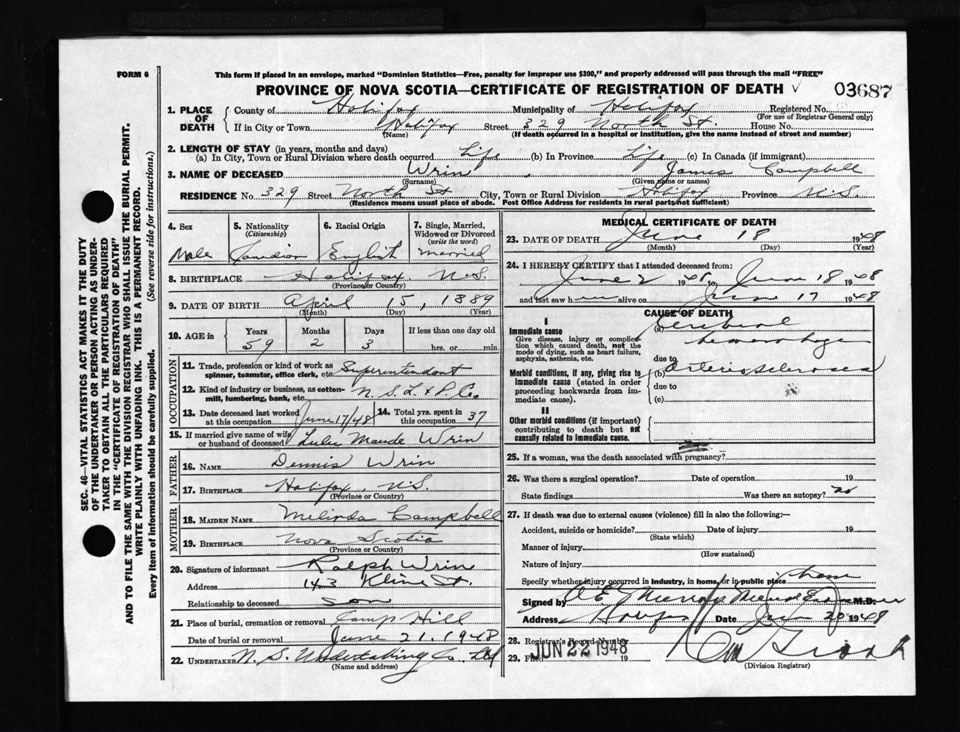 FORM 6
This form if placed in an envelope, marked "Dominion Statistics—Free, penalty for improper use $300," and properly addressed will pass through the mail "FREE"
PROVINCE OF NOVA SCOTIA—CERTIFICATE OF REGISTRATION OF DEATH 03687
1. PLACE OF DEATH County of Halifax Municipality of Halifax Registered No.
(For use of Registrar General only)
If in City or Town Halifax Street 329 North St. House No.
(Name) (If death occurred in a hospital or institution, give the name instead of street and number)
2. LENGTH OF STAY (in years, months and days)
(a) In City, Town or Rural Division where death occurred Life (b) In Province Life (c) In Canada (if immigrant)
3. NAME OF DECEASED Wrin, James Campbell
(Surname) (Given name or names)
RESIDENCE No. 329 Street North St City, Town or Rural Division Halifax Province N.S.
(Residence means usual place of abode. Post Office Address for residents in rural parts not sufficient)
4. Sex 5. Nationality 6. Racial Origin 7. Single, Married, Widowed or Divorced
(Citizenship) (write the word)
Male Canadian English Married
8. BIRTHPLACE Halifax N.S.
(Province or Country)
9. DATE OF BIRTH April 15, 1889
(Month) (Day) (Year)
10. AGE in Years Months Days If less than one day old
59 2 3 hrs. or min.
OCCUPATION
11. Trade, profession or kind of work as spinner, teamster, office clerk, etc. Superintendant
12. Kind of industry or business, as cotton-mill, lumbering, bank, etc. N.S. L & P. Co.
13. Date deceased last worked at this occupation June 17/48 14. Total yrs. spent in this occupation 37
15. If married give name of wife or husband of deceased Lulu Maude Wrin
FATHER
16. NAME Dennis Wrin
17. BIRTHPLACE Halifax, N.S.
(Province or Country)
MOTHER
18. MAIDEN NAME Melinda Campbell
19. BIRTHPLACE Nova Scotia
(Province or Country)
20. Signature of informant Ralph Wrin
Address 143 Kline St.
Relationship to deceased son
21. Place of burial, cremation or removal Camp Hill
Date of burial or removal June 21, 1948
22. UNDERTAKER N. S. Undertaking Co. Ltd
(Name and address)
MEDICAL CERTIFICATE OF DEATH
23. DATE OF DEATH June 18 1948
(Month) (Day)
24. I HEREBY CERTIFY that I attended deceased from:
June 2 1948 to June 18 1948
and last saw him alive on June 17 1948
CAUSE OF DEATH
I
Immediate cause (a) Cerebral hemorrhage
Give disease, injury or complication which caused death, not the mode of dying, such as heart failure, asphyxia, asthenia, etc.
due to
Morbid conditions, if any, giving rise to immediate cause (stated in order proceeding backwards from immediate cause). (b) Arteriosclerosis
due to
(c)
II
Other morbid conditions (if important) contributing to death but not causally related to immediate cause.
25. If a woman, was the death associated with pregnancy?
26. Was there a surgical operation? Date of operation 19
State findings Was there an autopsy? no
27. If death was due to external causes (violence) fill in also the following:—
Accident, suicide or homicide? Date of injury 19
(State which)
Manner of injury
(How sustained)
Nature of injury
Specify whether injury occurred in industry, in home, or in public place
Signed by M.D.
Address Halifax Date June 20 1948
28. Registrar's Record Number
29. Filed JUN 22 1948 19
(Division Registrar)
SEC. 46—VITAL STATISTICS ACT MAKES IT THE DUTY
OF THE UNDERTAKER OR PERSON ACTING AS UNDER-
TAKER TO OBTAIN ALL THE PARTICULARS REQUIRED
IN THE "CERTIFICATE OF REGISTRATION OF DEATH"
AND TO FILE THE SAME WITH THE DIVISION REGISTRAR WHO SHALL ISSUE THE BURIAL PERMIT.
WRITE PLAINLY WITH UNFADING INK. THIS IS A PERMANENT RECORD.
Every item of information should be carefully supplied. (See reverse side for instructions.)